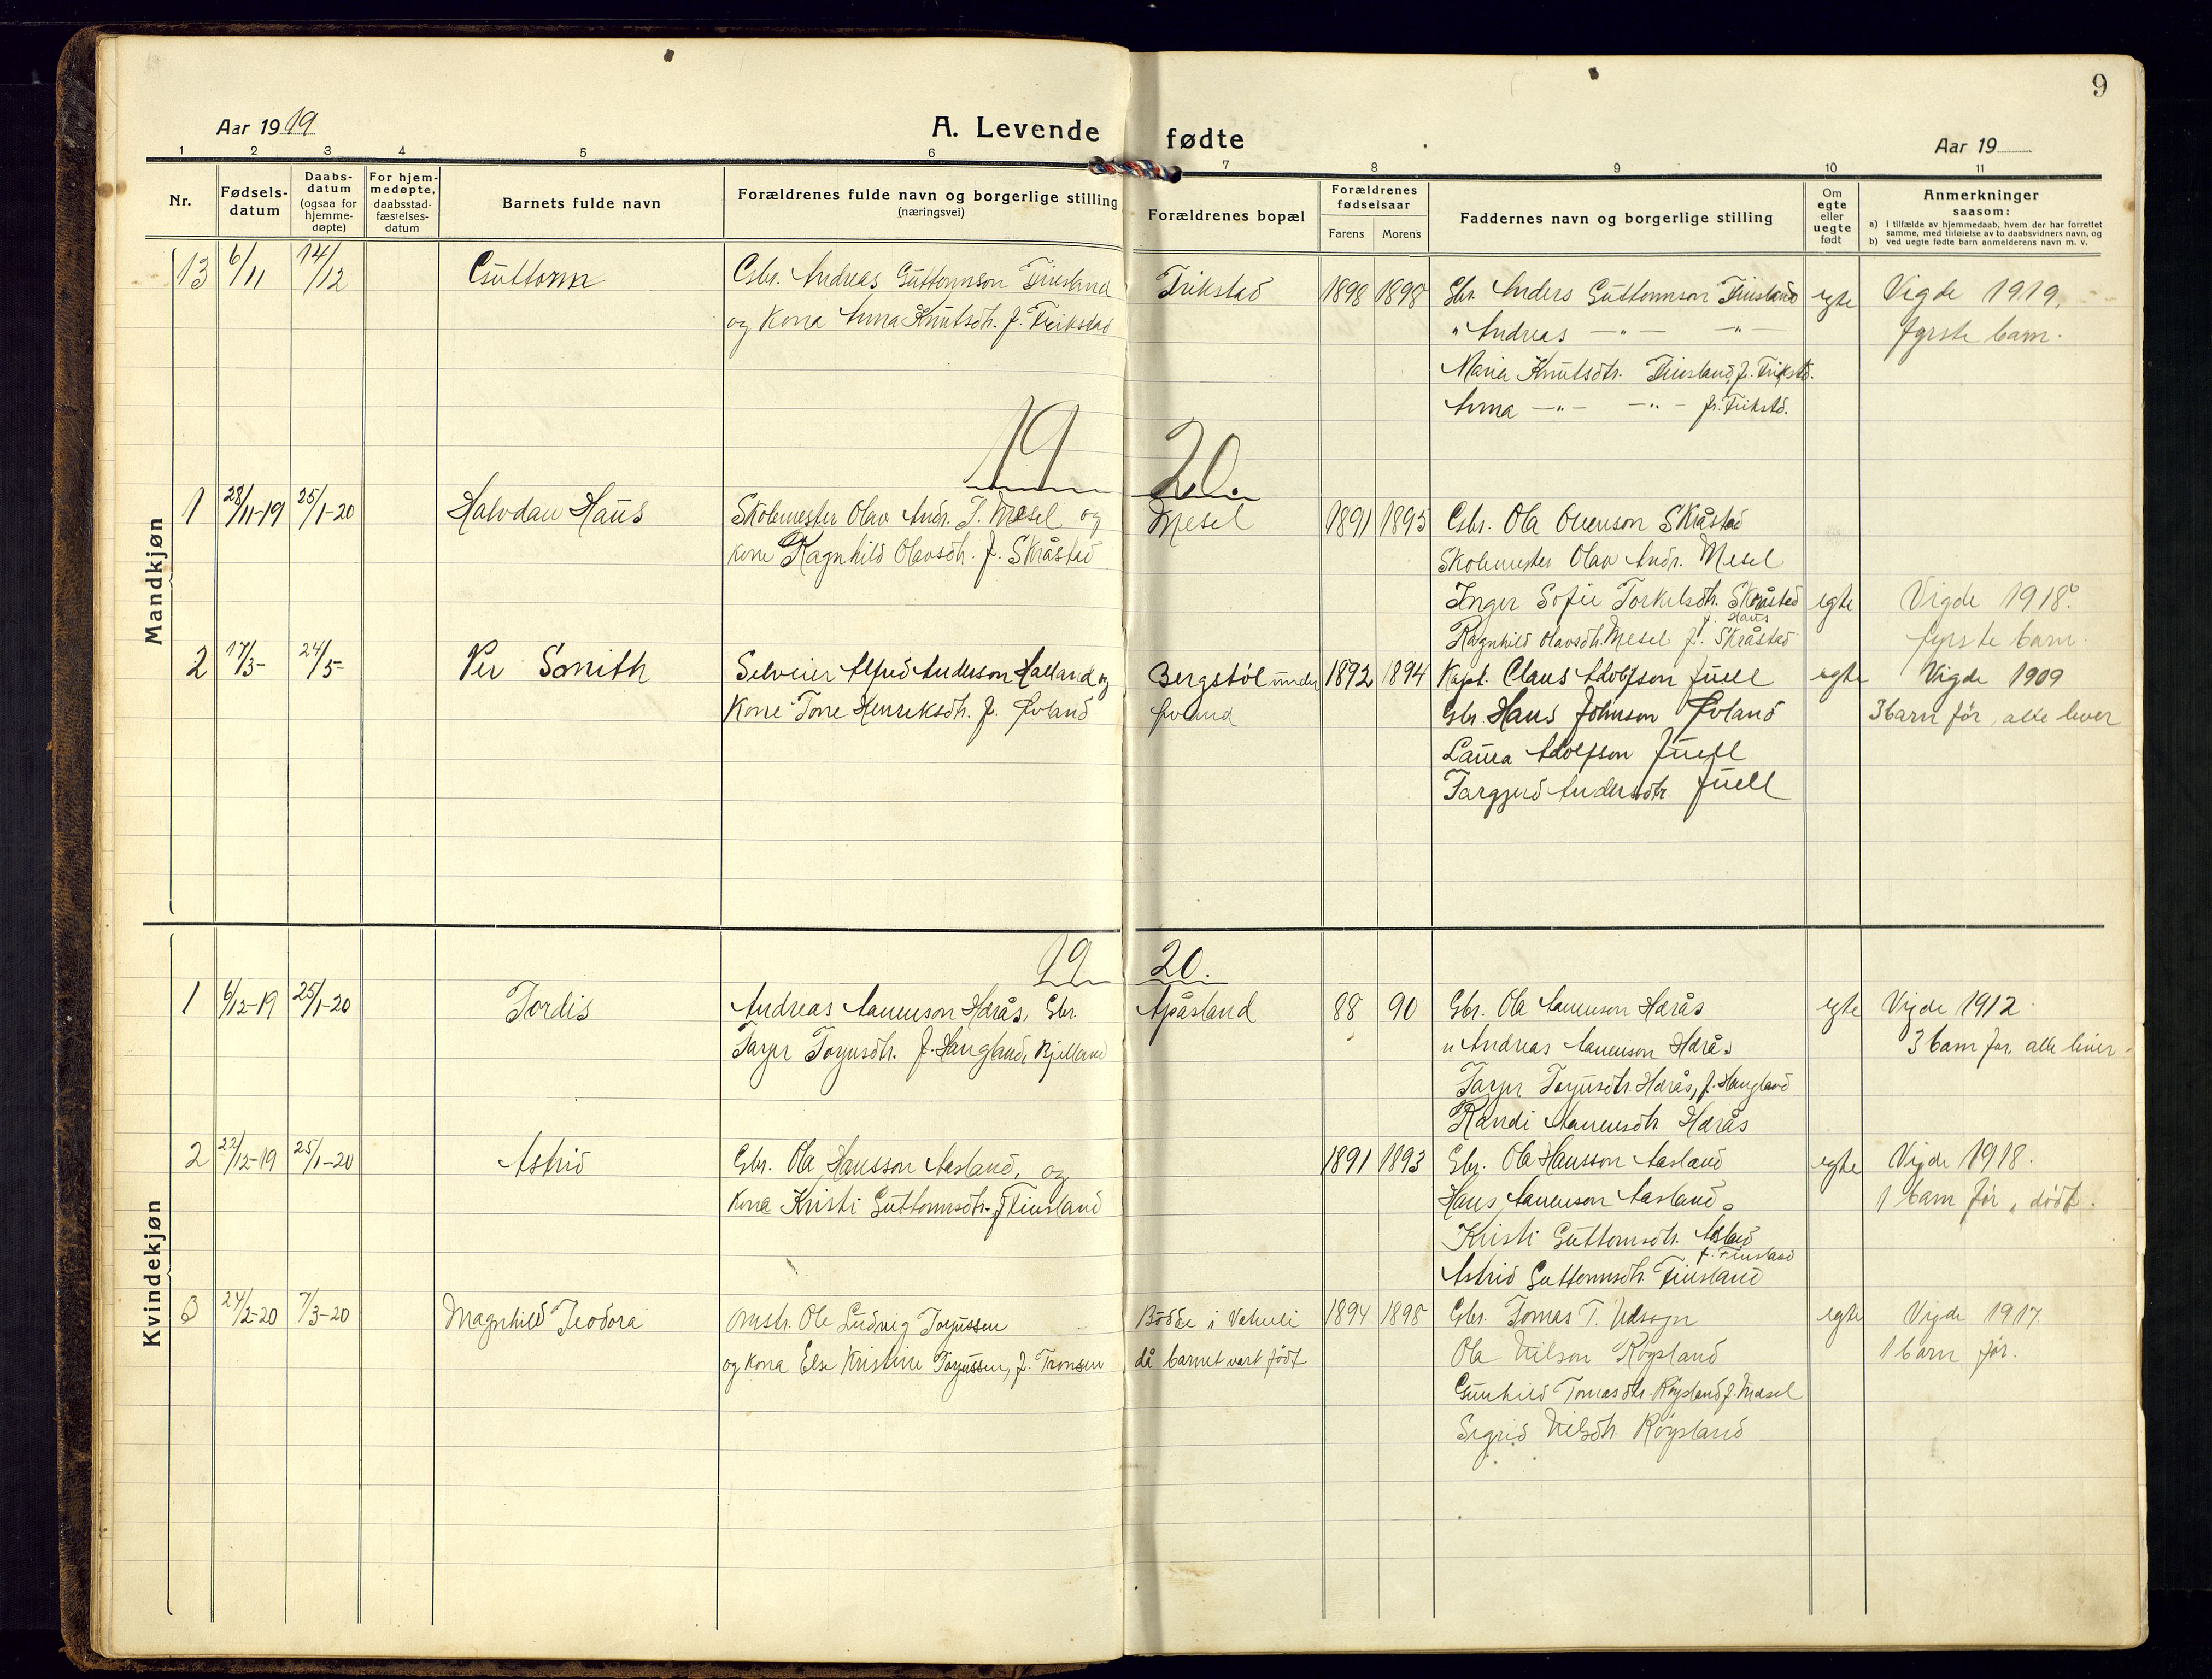 9
Aar 1919
A. Levende fødte
Aar 19
1 2 3 4 5 6 7 8 9 10 11
Nr.
Fødsels-
datum
Daabs-
datum
(ogsaa for
hjemme-
døpte)
For hjem-
medøpte,
daabsstad-
fæstelses-
datum
Barnets fulde navn
Forældrenes fulde navn og borgerlige stilling
(næringsvei)
Forældrenes bopæl
Forældrenes
fødselsaar
Farens Morens
Faddernes navn og borgerlige stilling
Om
egte
eller
uegte
født
Anmerkninger
saasom:
a) i tilfælde av hjemmedaab, hvem der har forrettet
samme, med tilføielse av to daabsvidners navn, og
b) ved uegte fødte barn anmelderens navn m. v.
Mandkjøn
13 6/11 14/12 Guttorm
Gbr. Andreas Guttormson Finsland
og Kona Anna Knutsdtr. f. Frikstad
Frikstad
1898 1898
Gbr. Anders Guttormson Finsland
" Andreas —"— —"—
Maria Knutsdtr. Finsland, f. Frikstd.
Anna —"— —"— f. Frikstd.
egte
Vigde 1919,
fyrste barn.
1920.
1 28/11-19 25/1-20 Halvdan Haus
Skolemester Olav Andr. T. Mesel og
kone Ragnhild Olavsdtr. f. Skråstad
Mesel
1891 1895
Gbr. Ola Ouenson Skråstad
Skolemester Olav Andr. Mesel
Inger Sofie Torkelsdtr. Skråstad
f. Haus
Ragnhild Olavsdtr. Mesel f. Skråstad
egte
Vigde 1918.
fyrste barn.
2 17/3- 24/5- Per Smith
Selveier Alfred Anderson Halland og
Kone Tone Henreksdtr. f. Øvland
Bergstöl under
Øvland
1892 1894
Kapt. Claus Adolfson Juell
Gbr. Hans Johnson Øvland
Laura Adolfson Juell
Targjerd Andersdtr. Juell
egte
Vigde 1909
3 barn för, alle lever
Kvindekjøn
1920.
1 6/12-19 25/1-20 Tordis
Andreas Aanenson Hærås, Gbr.
Tarjer Torjusdtr. f. Haugland, Bjelland
Apåsland
88 90
Gbr. Ola Aanenson Hærås
" Andreas Aanenson Hærås
Tarjer Torjusdtr. Hærås, f. Haugland
Randi Aanensdtr Hærås
egte
Vigde 1912
3 barn før, alle liver
2 22/12-19 25/1-20 Astrid
Gbr. Ola Hansson Aasland, og
Kona Kristi Guttormsdtr. f. Finsland
1891 1893
Gbr. Ola Hansson Aasland
Hans Aanenson Aasland
Kristi Guttormsdtr. Aasland
f. Finsland
Astrid Guttormsdtr. Finsland
egte
Vigde 1918.
1 barn før, dödt.
3 24/2-20 7/3-20 Magnhild Teodora
Ola Ludvig Torjussen
og kona Else Kristine Torjussen, f. Tronsen
Bødde i Vatneli
då barnet vart födt
1894 1898
Gbr. Tomas T. Udsogn
Ola Nilson Röysland
Gunhild Tomasdtr. Röysland f. Mæsel
Sigrid Nilsdtr. Röysland
egte
Vigde 1917.
1 barn för.